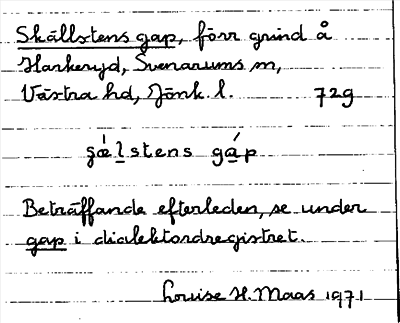 Skällstens gap, förr grind å
Harkeryd, Svenarums sn,
Västra hd, Jönk. l. 729
ʂǽlstens gáp
Beträffande efterleden, se under
gap i dialektordregistret.
Louise H. Maas 1971